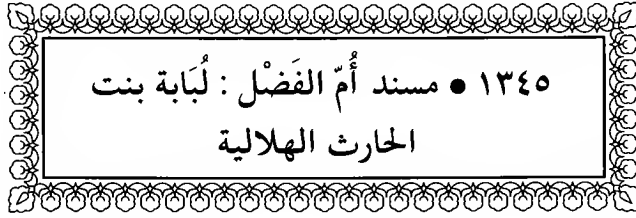 ١٣٤٥ ● مسند أُمّ الفَضْل : لُبَابة بنت
الحارث الهلالية